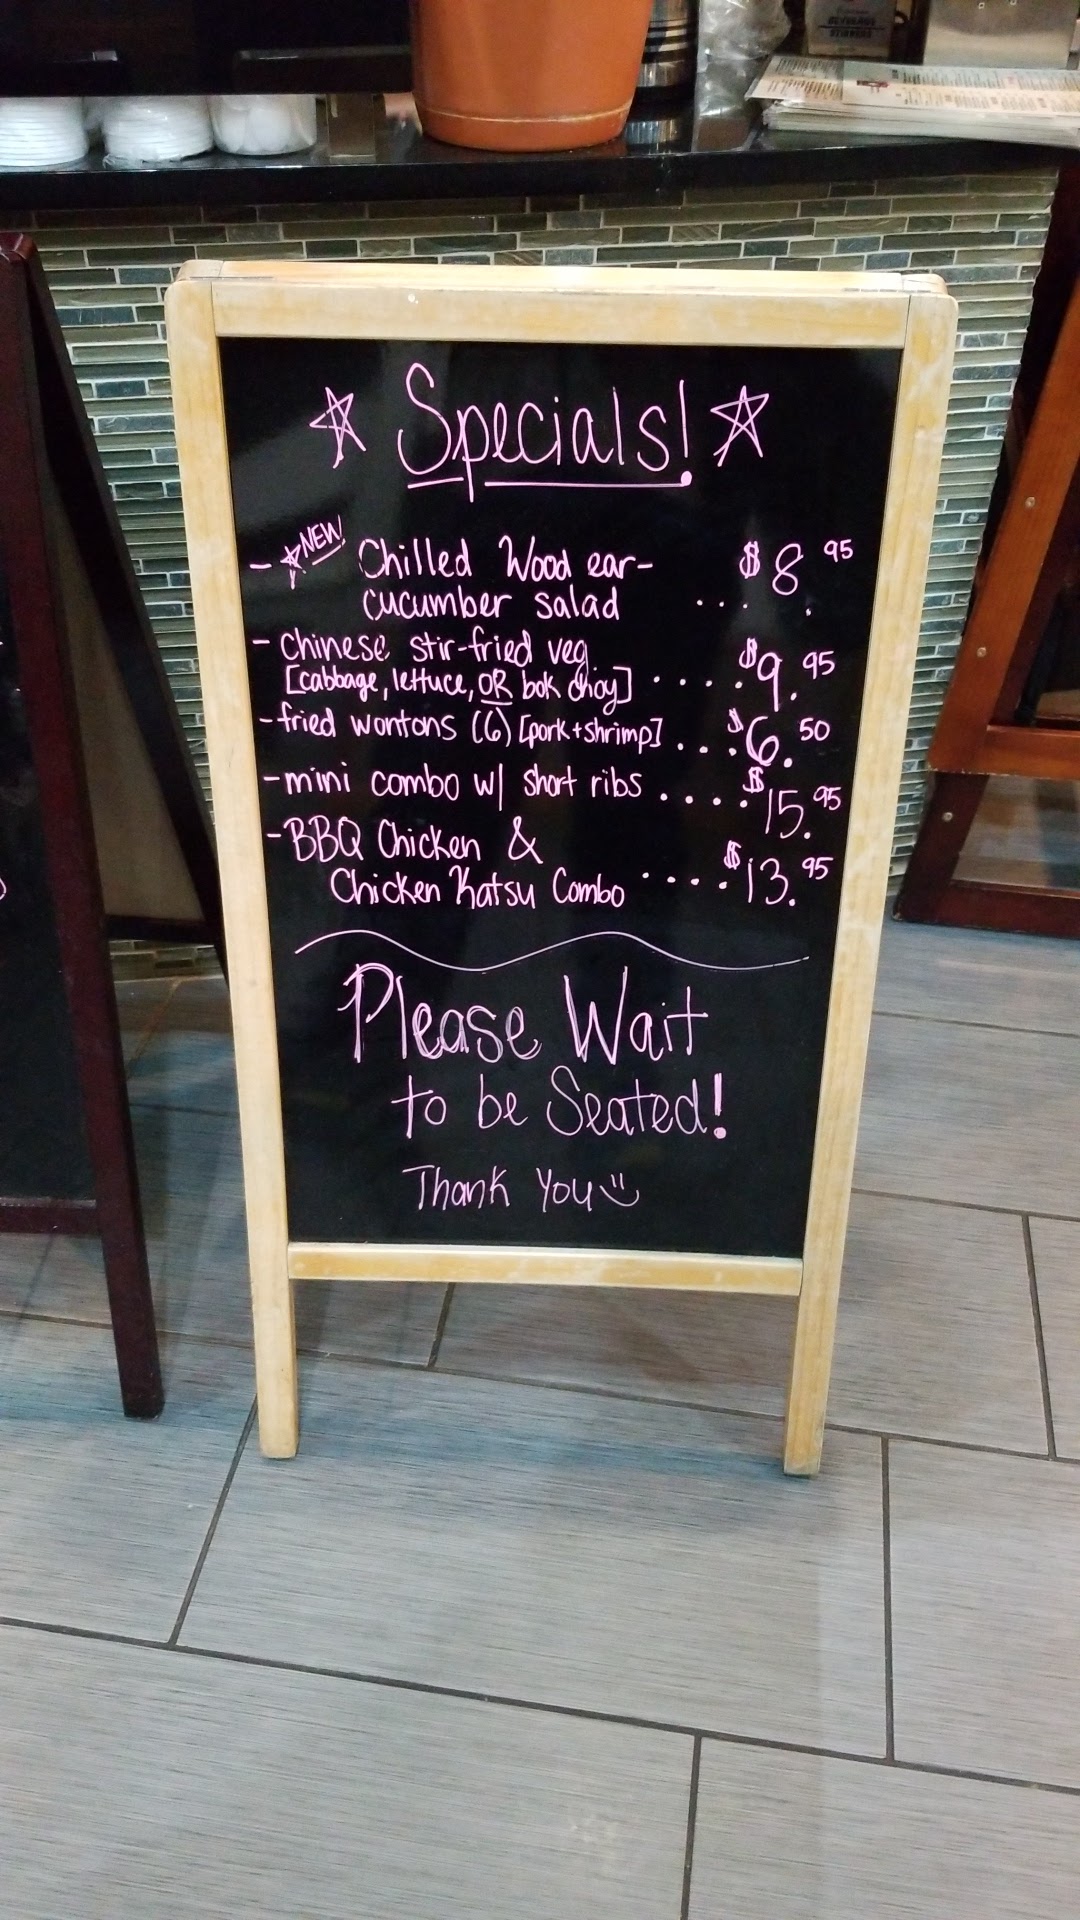 BEVERAGE
STIRRERS
☆ Specials! ☆
- ☆ NEW! Chilled Wood ear- $8.95
cucumber salad ...
- Chinese stir-fried veg.
[cabbage, lettuce, OR bok choy] ..... $9.95
- fried wontons (6) [pork + shrimp] ... $6.50
- mini combo w/ short ribs .... $15.95
- BBQ Chicken &
Chicken Katsu Combo .... $13.95
Please Wait
to be Seated!
Thank You